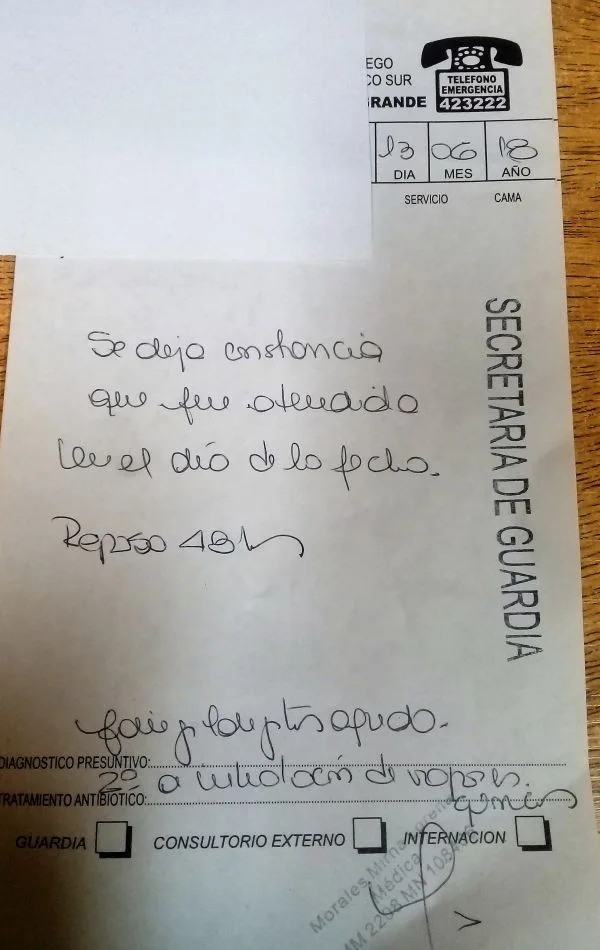 EGO
CO SUR
RANDE
TELEFONO
EMERGENCIA
423222
13 06 18
DIA MES AÑO
SERVICIO CAMA
SECRETARIA DE GUARDIA
Se deja constancia
que fue atendido
en el día de la fecha.
Reposo 48hs
faringolaringitis aguda.
DIAGNOSTICO PRESUNTIVO:
2º a inhalación de vapores
químicos
TRATAMIENTO ANTIBIOTICO:
GUARDIA CONSULTORIO EXTERNO INTERNACION
Morales
Médica
MM 2298 MN